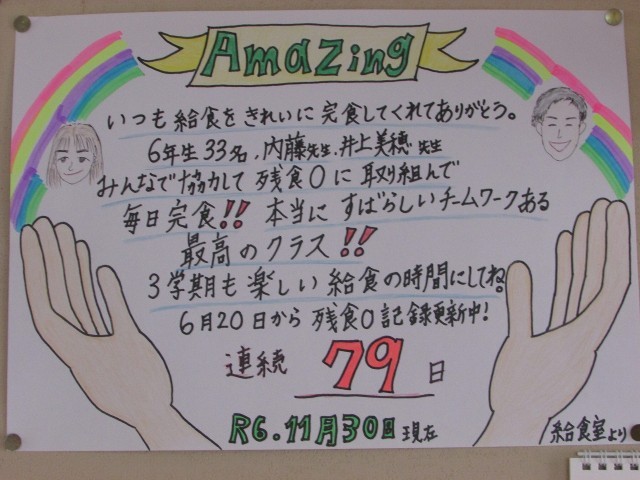 Amazing
いつも給食をきれいに完食してくれてありがとう。
6年生33名、内藤先生、井上美穂先生
みんなで協力して残食0に取り組んで
毎日完食!! 本当にすばらしいチームワークある
最高のクラス!!
3学期も楽しい給食の時間にしてね。
6月20日から残食0記録更新中!
連続 79日
R6.11月30日現在
給食室より